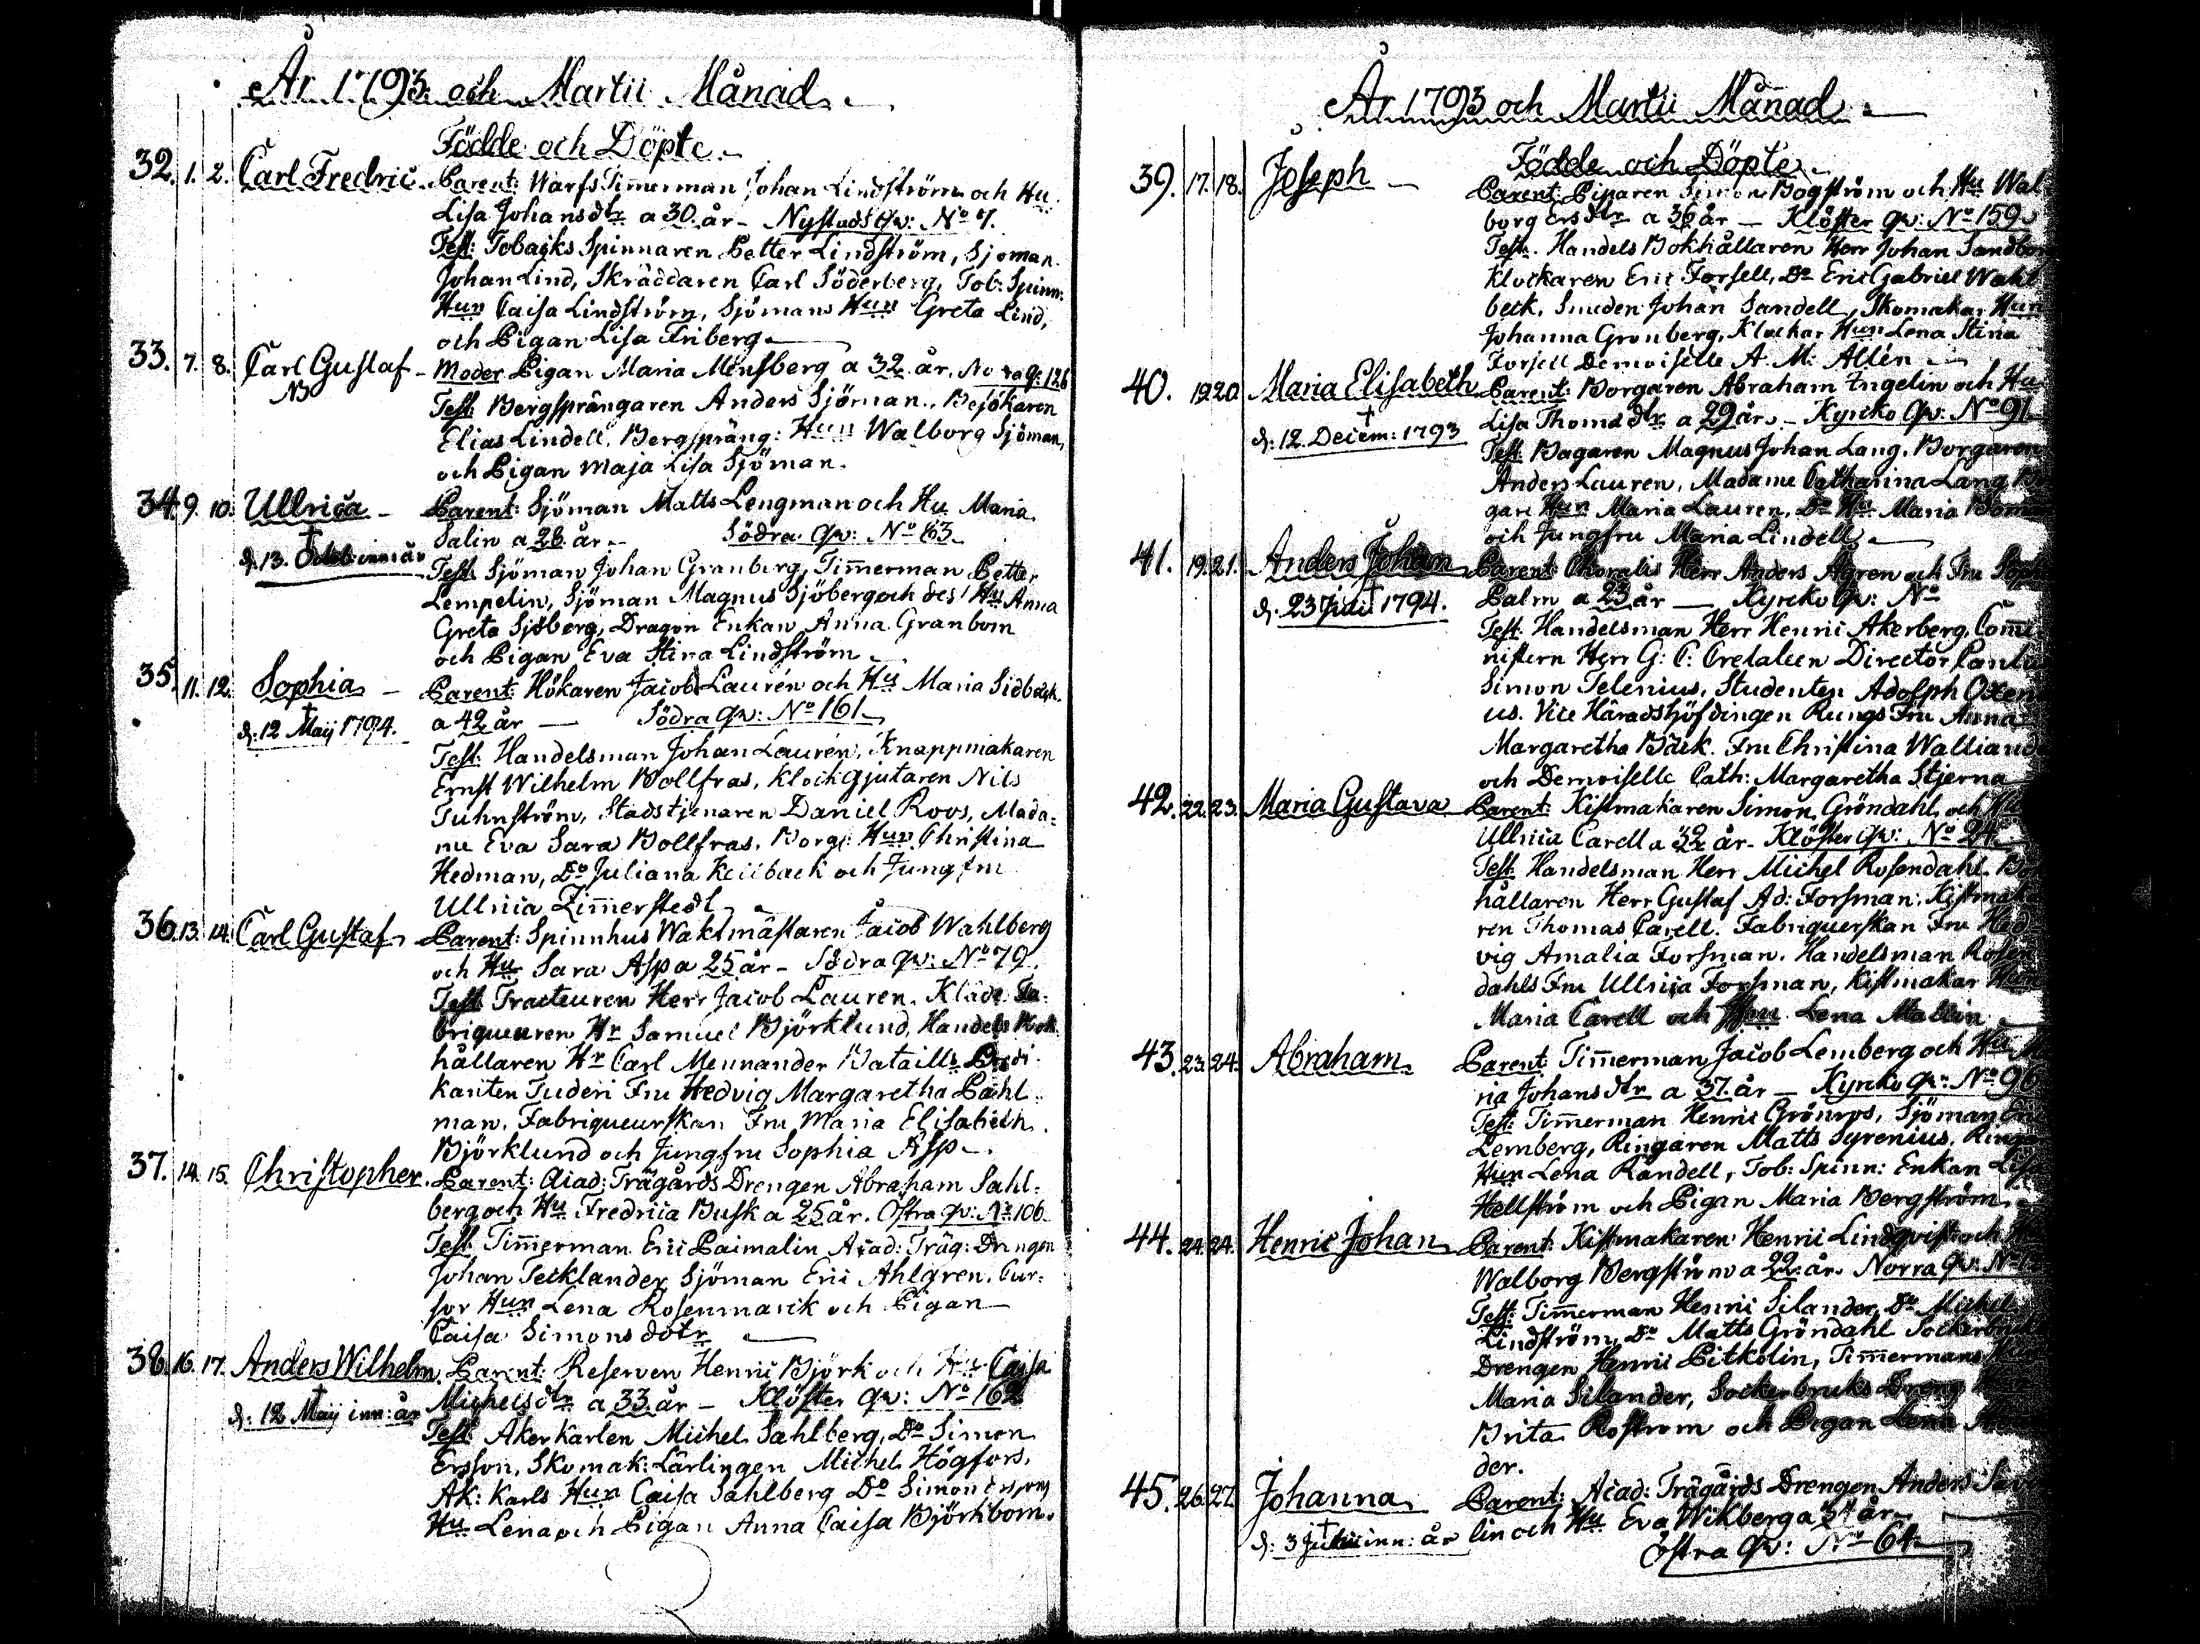 År 1793 och Martii Månad.
Födde och Döpte.
32. 1. 2. Carl Fredric. Parent: Warfs Timmerman Johan Lindström och Hu
Lisa Johansdtr a 30 år - Nystads qv: No 7.
Test: Tobacks Spinnaren Petter Lindström, Sjöman
Johan Lind, Skräddaren Carl Söderberg, Tob: Spinn:
Hun Caisa Lindström, Sjömans Hun Greta Lind,
och Pigan Lisa Friberg
33. 7. 8. Carl Gustaf - Moder Pigan Maria Mensberg a 32 år. Norra q: 126
NB Test: Bergsprängaren Anders Sjöman, Besökaren
Elias Lindell, Bergspräng: Hun Walborg Sjöman,
och Pigan Maja Lisa Sjöman.
34. 9. 10. Ullrica - Parent: Sjöman Matts Lengman och Hu Maria
Salin a 26 år - Södra qv: No 63.
† d. 13. Octob: inn: år
Test: Sjöman Johan Granberg, Timmerman Petter
Lempelin, Sjöman Magnus Sjöberg och des Hu Anna
Greta Sjöberg, Dragon Enkan Anna Granbom
och Pigan Eva Stina Lindström
35. 11. 12. Sophia - Parent: Hökaren Jacob Laurén och Hu Maria Sidbäck
† d: 12 Maij 1794. a 42 år - Södra qv: No 161
Test: Handelsman Johan Laurén, Knappmakaren
Ernst Wilhelm Bollfras, Klockgjutaren Nils
Tuhnström, Stadstjenaren Daniel Roos, Mada=
me Eva Sara Bollfras, Borg: Hun Christina
Hedman, Do Juliana Keilback och Jungfru
Ullrica Zimmerstedt
36. 13. 14. Carl Gustaf - Parent: Spinnhus Waktmästaren Jacob Wahlberg
och Hu Sara Asp a 25 år - Södra qv: No 79.
Test: Tracteuren Herr Jacob Lauren. Kläde Fa=
briqueuren Hr Samuel Björklund, Handels Bok
hållaren Hr Carl Mennander Bataills Predi
kanten Tuderi Fru Hedvig Margaretha Pahl=
man, Fabriqueurskan Fru Maria Elisabeth
Björklund och Jungfru Sophia Asp.
37. 14. 15. Christopher. Parent: Acad: Trägårds Drengen Abraham Sahl=
berg och Hu Fredrica Busk a 25 år. Östra qv: No 106
Test: Timmerman Eric Paimalin Acad: Träg: Drengen
Johan Tecklander, Sjöman Eric Ahlgren, Cur=
sor Hun Lena Rosenmarck och Pigan
Caisa Simonsdotr
38. 16. 17. Anders Wilhelm. Parent: Reserven Henric Björk och Hu Caisa
Michelsdtr a 33 år - Klöster qv: No 162
† d: 12 Maij inn: år
Test: Åkerkarlen Michel Sahlberg, Do Simon
Ersson, Skomak: Lärlingen Michel Högfors,
Åk: Karls Hun Caisa Sahlberg Do Simon Erssons
Hu Lena och Pigan Anna Caisa Björkbom.
År 1793 och Martii Månad
Födde och Döpte
39. 17. 18. Joseph - Parent: Simon Bogström och Hu Wal=
borg Ersdtr a 36 år - Klöster qv: No 159
Test. Handels Bokhållaren Herr Johan Sandbom
Klockaren Eric Forsell, Do Eric Gabriel Wahl
beck, Smeden Johan Sandell, Skomakar Hun
Johanna Gronberg, Klockar Hun Lena Stina
Forsell Demoiselle A. M: Allén
40. 19 20 Maria Elisabeth Parent: Borgaren Abraham Ingelin och Hu
† d: 12 Decem: 1793 Lisa Thomsdtr a 29 år - Kyrcko qv: No 91
Test: Bagaren Magnus Johan Lang, Borgaren
Anders Lauren, Madame Catharina Lang
gare Hun Maria Lauren, Do Hu Maria
och Jungfru Maria Lindell
41. 19. 21. Anders Johan Parent: Choralis Herr Anders Ågren och Fru
† d. 23 1794. Palm a 23 år - Kyrcko qv: No
Test: Handelsman Herr Henric Åkerberg,
nistern Herr G: C. Director
Simon Telenius, Studenten Adolph
us. Vice Häradshöfdingen Rungs Fru Anna
Margaretha Bäck. Fru Christina
och Demoiselle Cath: Margaretha Stjerna
42. 22. 23. Maria Gustava Parent: Kistmakaren Simon Gröndahl och Hu
Ullrica Carell a 32 år - Klöster qv: No 24
Test: Handelsman Herr Michel Rosendahl. Bok
hållaren Herr Gustaf Ad: Forsman, Kistmaka
ren Thomas Carell. Fabriquerskan Fru Hed=
vig Amalia Forsman. Handelsman Rosen
dahls Fru Ullrica Forsman, Kistmakar Hun
Maria Carell och Lena Mallin
43. 23. 24. Abraham. Parent: Timmerman Jacob Lemberg och Hu Ma
ria Johansdtr a 37 år - Kyrcko qv: No 96
Test: Timmerman Henric Grönroos, Sjöman Eric
Lemberg, Ringaren Matts Syrenius, Ringar
Hun Lena Randell, Tob: Spinn: Enkan Lisa
Hellström och Pigan Maria Bergström
44. 24. 24. Henric Johan Parent: Kistmakaren Henric Lindqvist och
Walborg Bergström a 22 år. Norra qv: No
Test: Timmerman Henric Silander, Do Michel
Lindström, Do Matts Gröndahl Sockerbruks
Drengen Henric Pitkolin, Timmermans
Maria Silander, Sockerbruks Dreng
Brita Roström och Pigan Lena
der.
45. 26. 27. Johanna Parent: Acad: Trägårds Drengen Anders
† d: 3 inn: år lin och Hu Eva Wikberg a 31 år
Östra qv: No 64